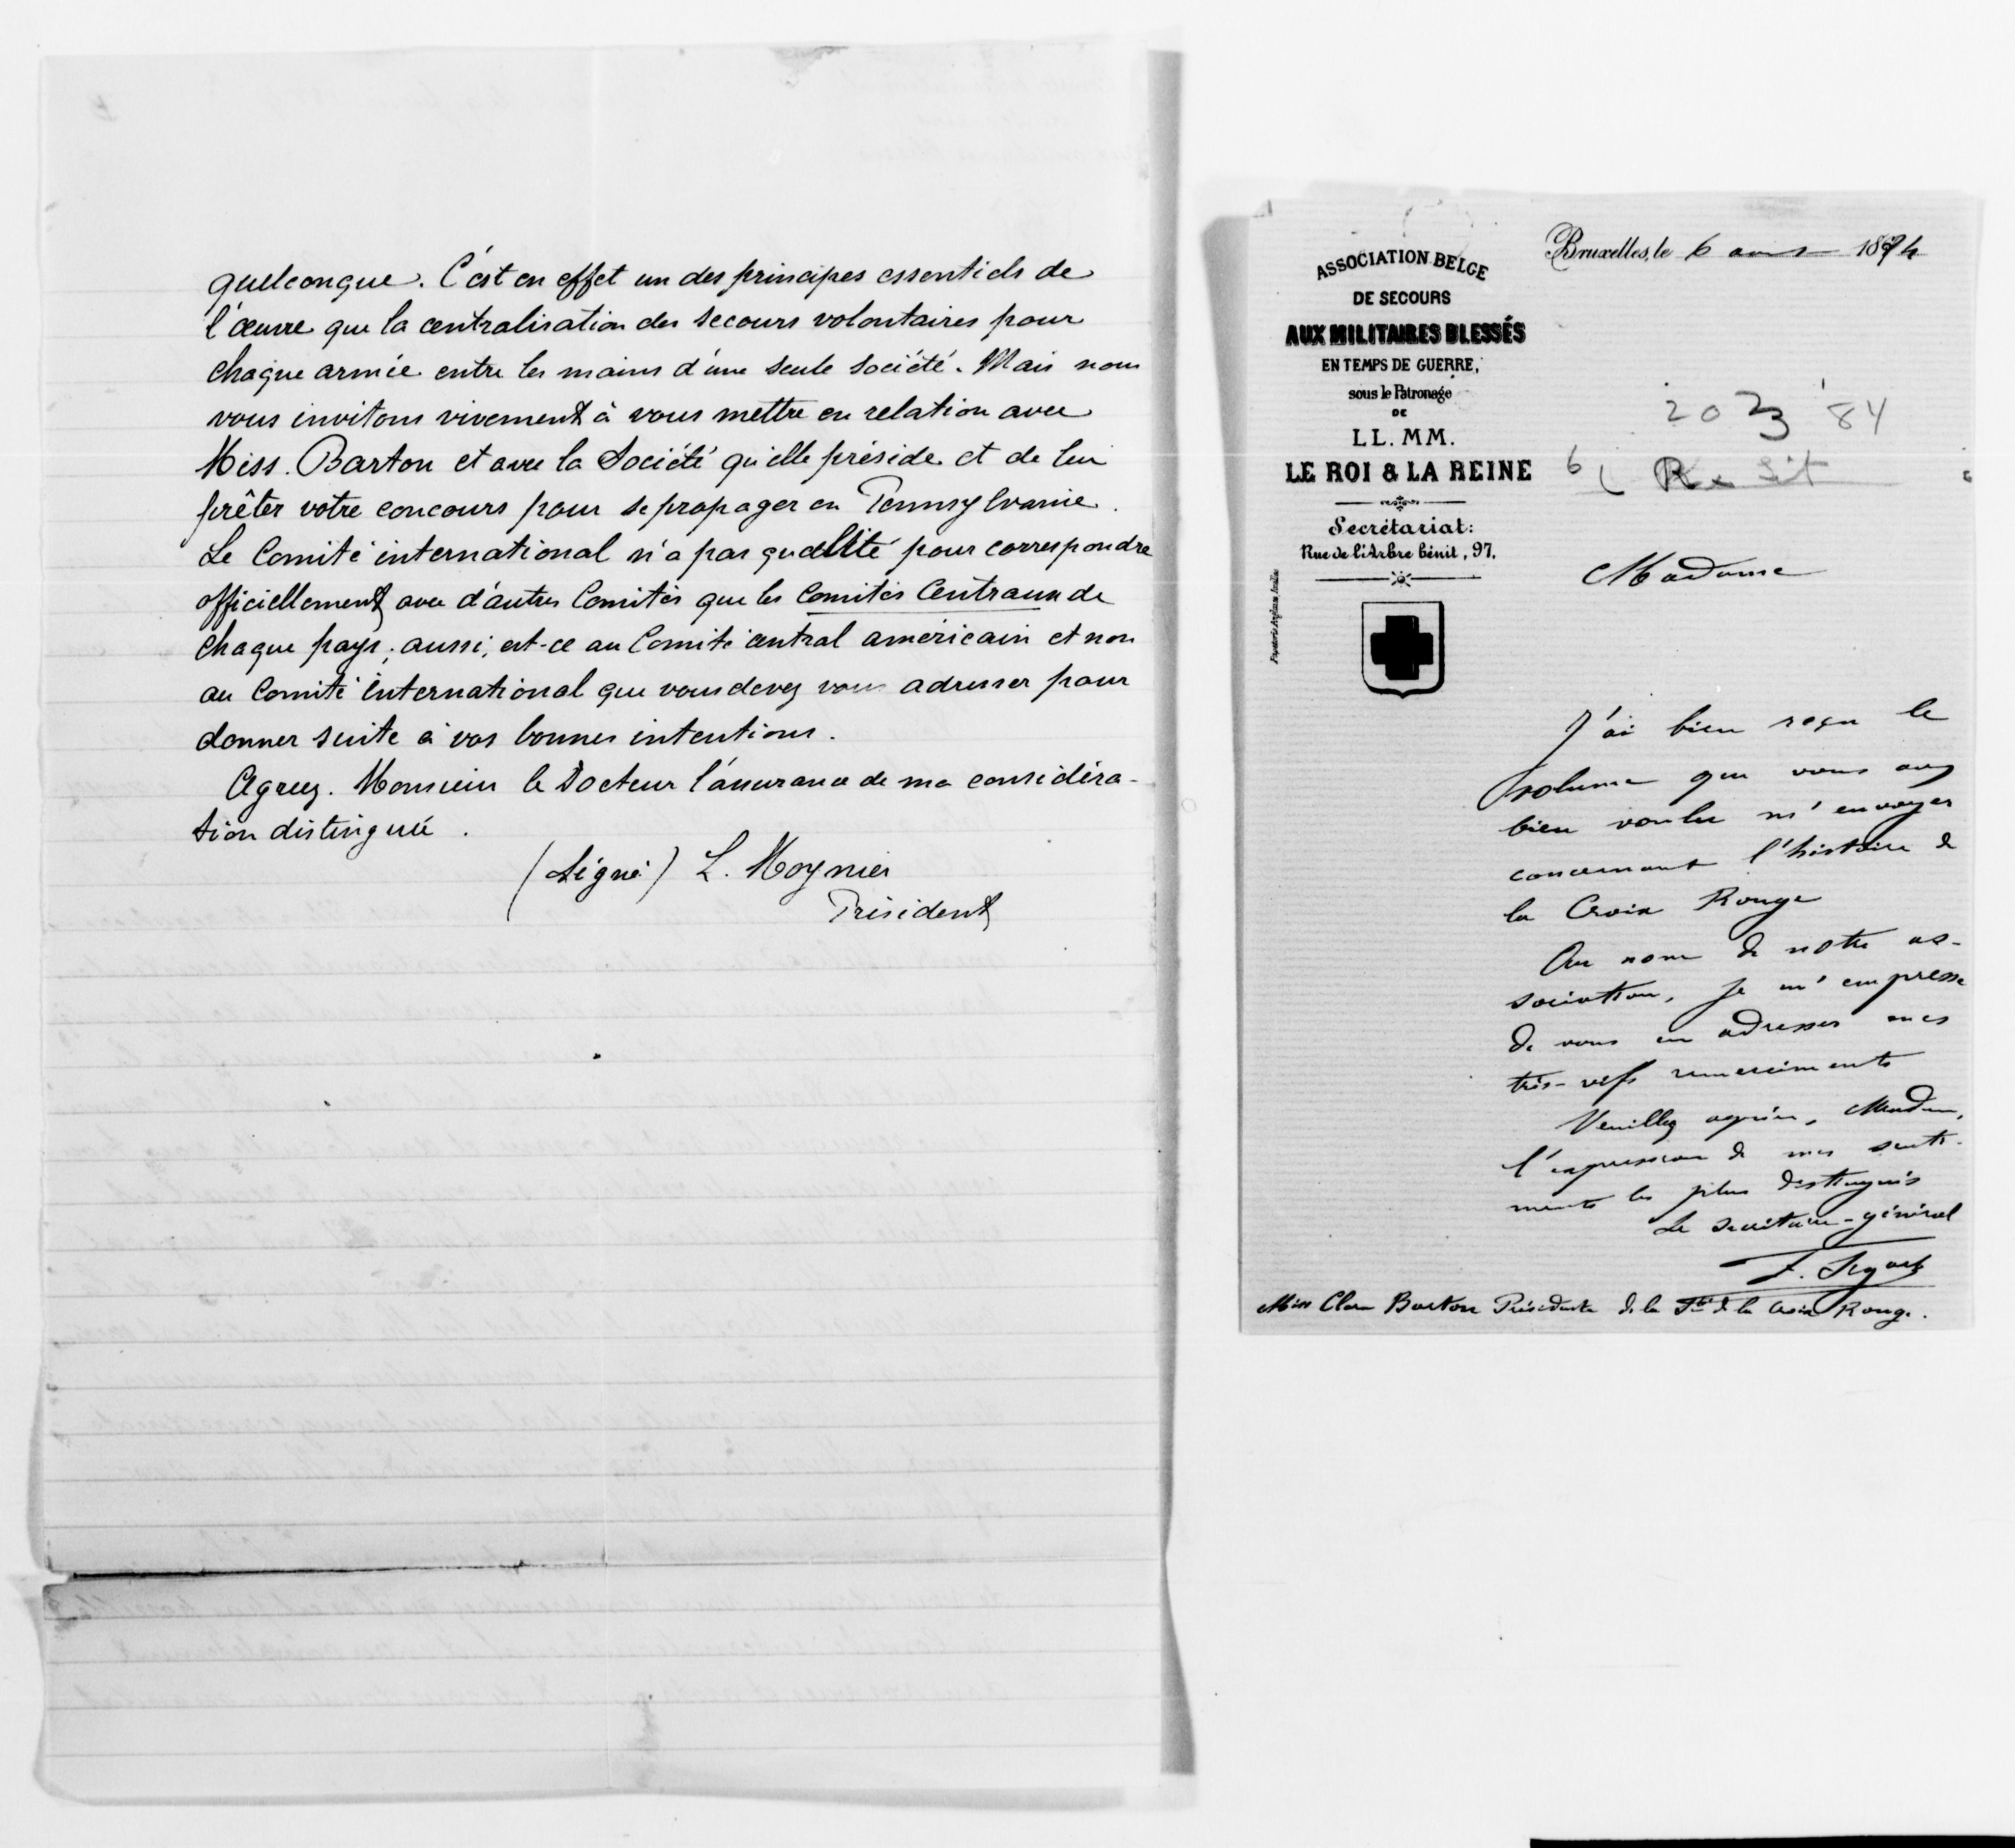 quelconque. C'est en effet un des principes essentiels de
l'œuvre que la centralisation des secours volontaires pour
chaque armée entre les mains d'une seule société. Mais nous
vous invitons vivement à vous mettre en relation avec
Miss. Barton et avec la Société qu'elle préside et de lui
prêter votre concours pour se propager en Pennsylvanie.
Le Comité international n'a pas qualité pour correspondre
officiellement avec d'autres Comités que les Comités Centraux de
chaque pays; aussi, est-ce au Comité central américain et non
au Comité International que vous devez vous adresser pour
donner suite à vos bonnes intentions.
Agréez. Monsieur le Docteur l'assurance de ma considéra-
tion distinguée.
(Signé) L. Moynier
Président
ASSOCIATION BELGE
DE SECOURS
AUX MILITAIRES BLESSÉS
EN TEMPS DE GUERRE,
sous le Patronage
DE
LL. MM.
LE ROI & LA REINE
Secrétariat:
Rue de l'Arbre bénit, 97.
Bruxelles, le 6 1884
203 '84
Madame
J'ai bien reçu le
volume que vous avez
bien voulu m'envoyer
concernant l'histoire de
la Croix Rouge
Au nom de notre as-
sociation, je m'empresse
de vous en adresser mes
très-vifs remerciments
Veuillez agréer, Madame,
l'expression de mes senti-
ments les plus distingués
Le Secrétaire-général
Miss Clara Barton Présidente de la Sté de la Croix Rouge.